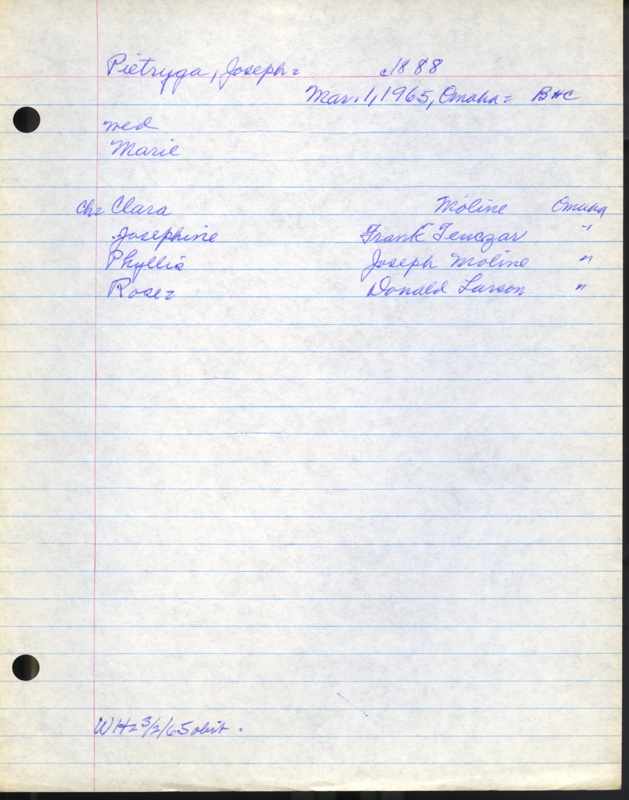 Pietryga, Joseph= c1888
Mar. 1, 1965, Omaha= BHC
med
Marie
ch= Clara Moline Omaha
Josephine Frank Tenczar "
Phyllis Joseph Moline "
Rose= Donald Larson "
WH=3/2/65 obit.